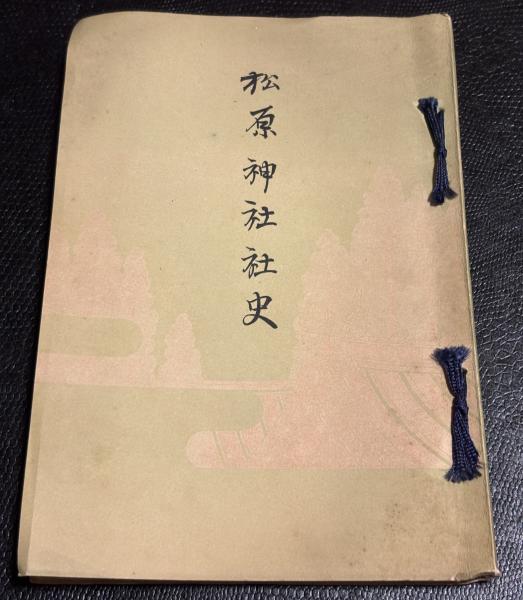 松原神社社史